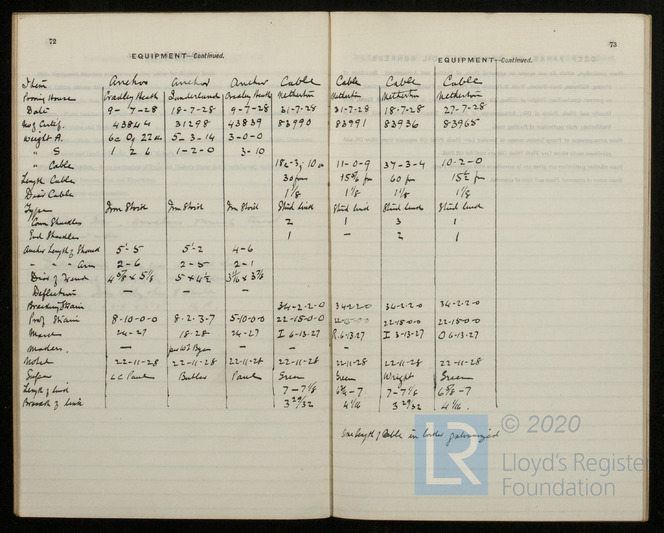 72
EQUIPMENT—Continued.
Item Anchor Anchor Anchor Cable
Proving House Cradley Heath Sunderland Cradley Heath Netherton
Date 9-7-28 18-7-28 9-7-28 31-7-28
No of Certif. 43844 31298 43839 83990
Weight A. 5-3-14 3-0-0
" S 1 2 6 1-2-0 3-10
" Cable
Length Cable 30 fm
Diar Cable 1 1/8
Type Iron Stock Iron Stock Iron Stock Stud link
Com Shackles 2
End Shackles 1
Anchor Length of Shank 5-5 5-2 4-6
" " Arm 2-6 2-5 2-1
Diar of Trend 5 x 4 1/2
Deflection — — —
Breaking Strain 34-2-2-0
Proof Strain 8-10-0-0 8-2-3-7 5-10-0-0 22-15-0-0
Marks 24-27 18-28 24-27 I 6-13-27
Makers. — —
Noted 22-11-28 22-11-28 22-11-28 22-11-28
Super Paul Butler Paul Green
Length of link 7-7 1/8
Breadth of link 3 29/32
73
EQUIPMENT—Continued.
Cable Cable Cable
Netherton Netherton Netherton
31-7-28 18-7-28 27-7-28
83991 83936 83965
11-0-9 37-3-4 10-2-0
60 fm
1 1/8 1 1/8 1 1/8
Stud link Stud link Stud link
1 3 1
— 2 1
34-2-2-0 34-2-2-0 34-2-2-0
22-15-0-0 22-15-0-0 22-15-0-0
R. 6-13-27 I 3-13-27 O 6-13-27
—
22-11-28 22-11-28 22-11-28
Green Wright Green
7-7 1/8 6 5/8-7
4 1/16 3 29/32 4 1/16.
One length of Cable in locker galvanized
LR © 2020
Lloyd's Register
Foundation